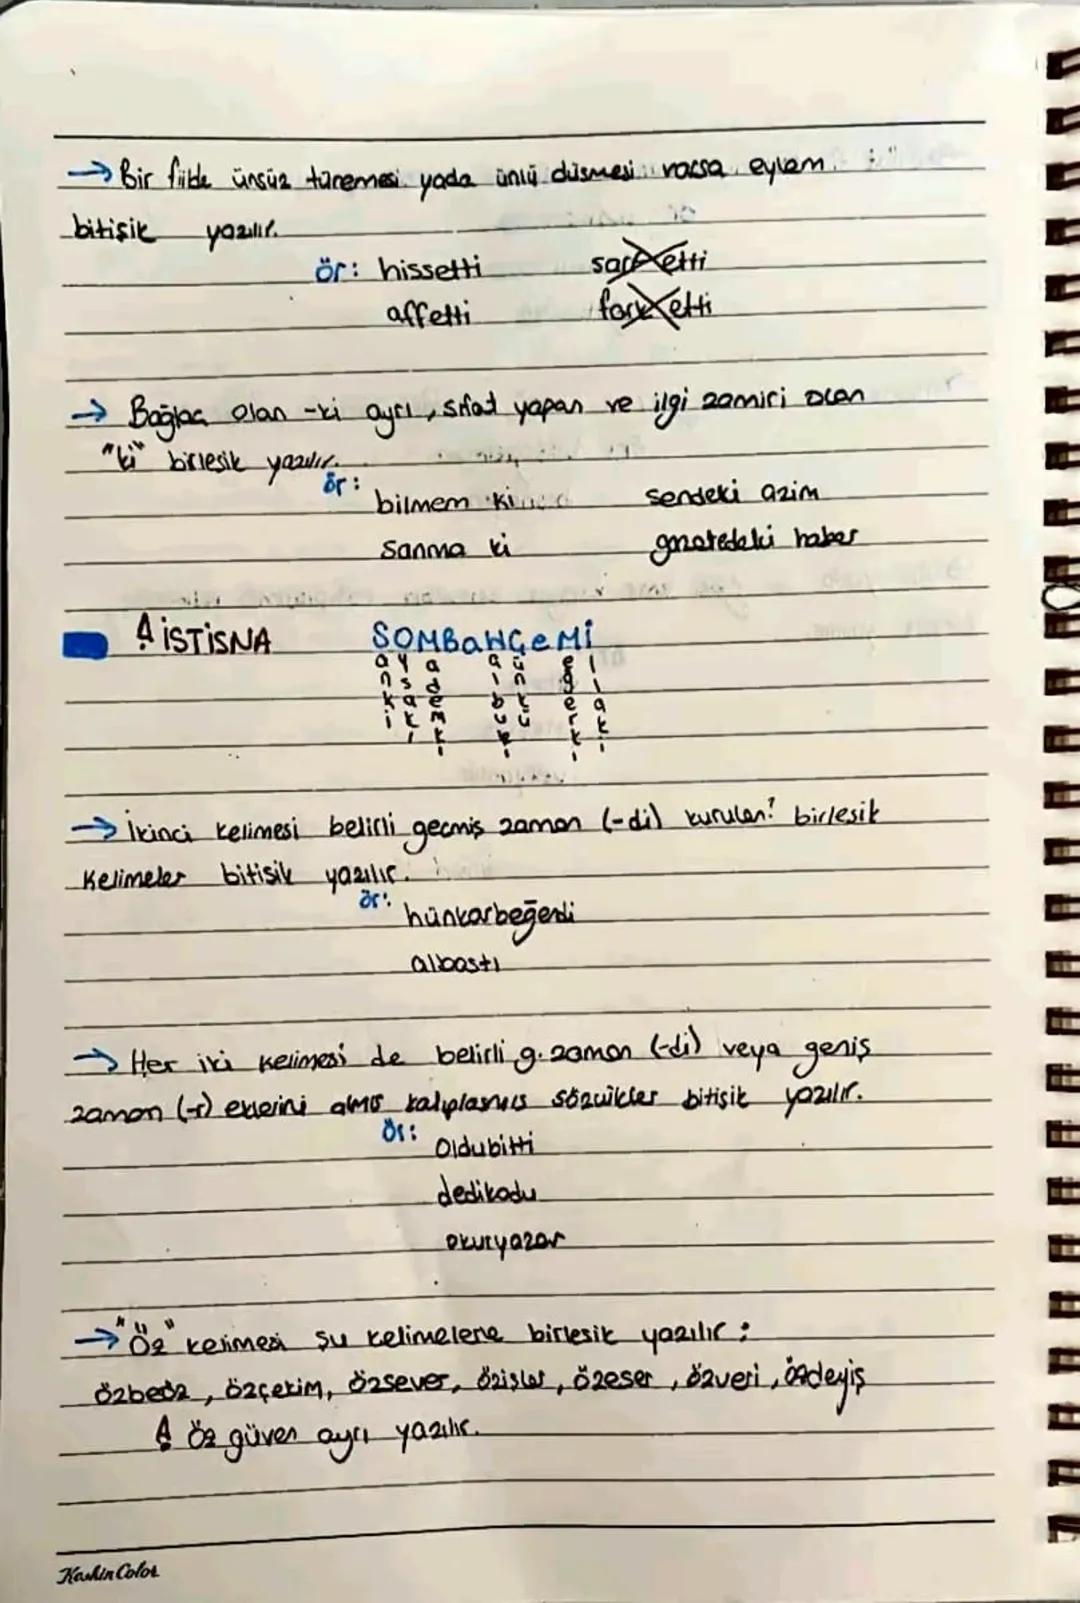 → Bir fiilde ünsüz türemesi yada ünlü düşmesi varsa eylem
bitişik yazılır.
ör: hissetti sarf etti
affetti fark etti
→ Bağlaç olan -ki ayrı, sıfat yapan ve ilgi zamiri olan
"ki" birleşik yazılır.
ör:
bilmem ki sendeki azim
sanma ki gazetedeki haber
İSTİSNA SOMBAHÇeMİ
anki ysaki ademki albuki ünkü eğerki llaki
→ İkinci kelimesi belirli geçmiş zaman (-di) kurulan? birleşik
kelimeler bitişik yazılır.
ör:
hünkarbeğendi
albastı
→ Her iki kelimesi de belirli g. zaman (-di) veya geniş
zaman (-r) eklerini almış kalıplaşmış sözcükler bitişik yazılır.
ör:
Oldubitti
dedikodu
okuryazar
→ "Öz" kelimesi şu kelimelerle birleşik yazılır:
özçekim, özsever, özeser, özveri, özdeyiş
Öz güven ayrı yazılır.
Kashin Color